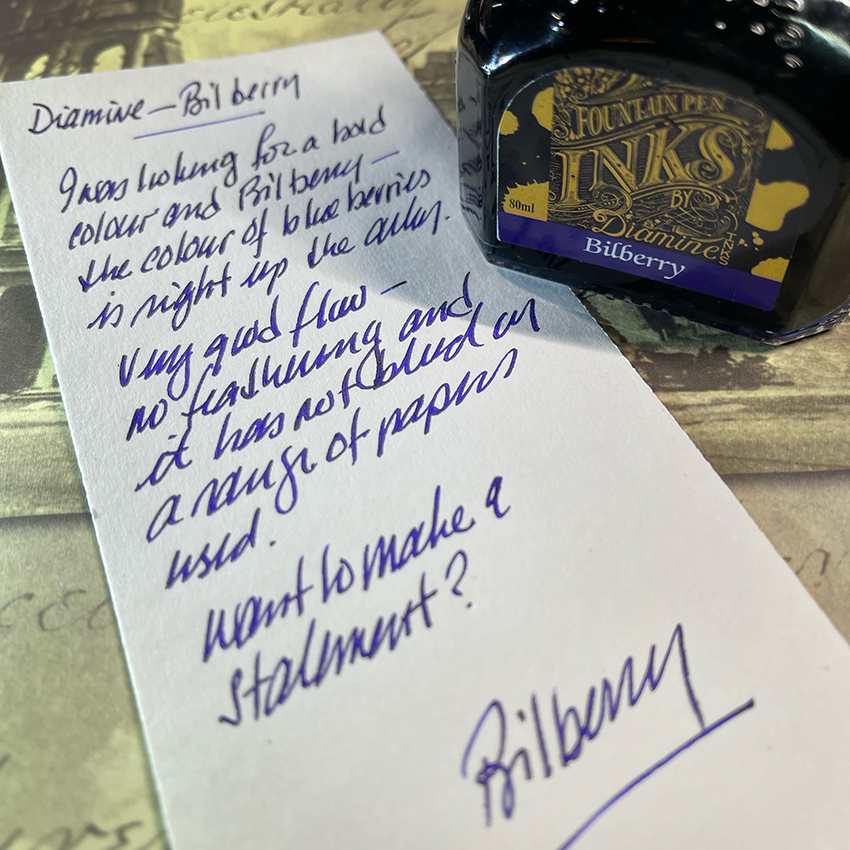 Diamine – Bilberry
I was looking for a bold
colour and Bilberry –
the colour of blueberries
is right up the alley.
Very good flow –
no feathering and
it has not bleed on
a range of papers
used.
want to make a
statement?
Bilberry
FOUNTAIN PEN
INKS
BY
Diamine
INKS
80ml
Bilberry